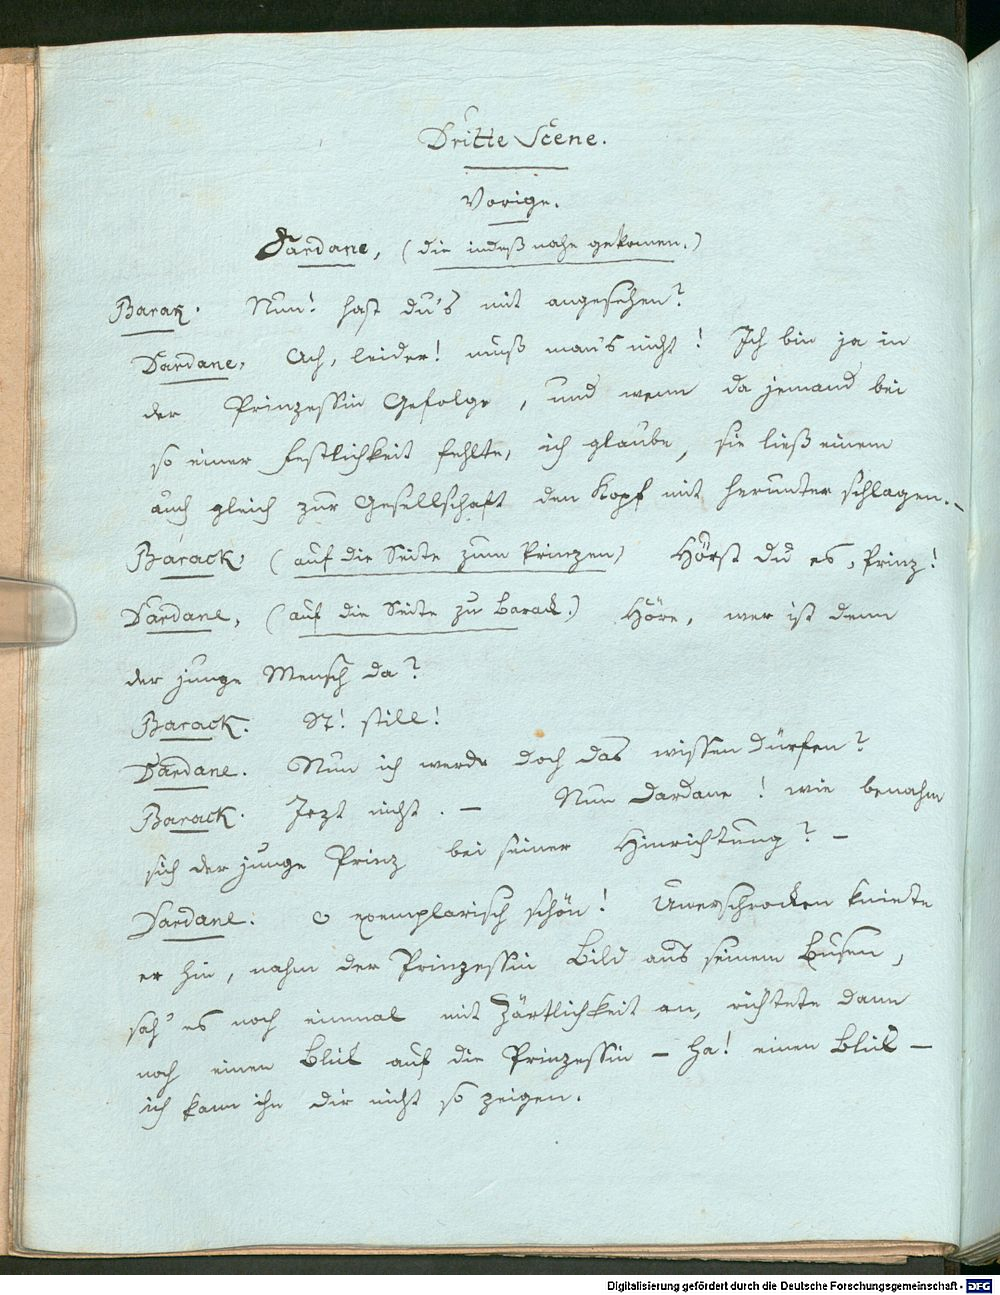 Dritte Scene.
Vorige.
Dardane, (die indeß nahe gekomen.)
Barak. Nun! hast du's mit angesehen?
Dardane, Ach, leider! muß man's nicht! Ich bin ja in
der Prinzessin Gefolge, und wenn da jemand bei
so einer Festlichkeit fehlte, ich glaube, sie ließ einem
auch gleich zur Gesellschaft den Kopf mit herunter schlagen. –
Barack, (auf die Seite zum Prinzen) Hörst du es, Prinz!
Dardane, (auf die Seite zu Barack.) Höre, wer ist denn
der junge Mensch da?
Barack. St! still!
Dardane. Nun ich werde doch das wissen dürfen?
Barack. Jezt nicht. – Nun Dardane! wie benahm
sich der junge Prinz bei seiner Hinrichtung? –
Dardane. O exemplarisch schön! Unerschrocken kniete
er hin, nahm der Prinzessin Bild aus seinem Busen,
sah' es noch einmal mit Zärtlichkeit an, richtete dann
noch einen Blick auf die Prinzessin – ha! einen Blick –
ich kann ihn dir nicht so zeigen.
Digitalisierung gefördert durch die Deutsche Forschungsgemeinschaft - DFG